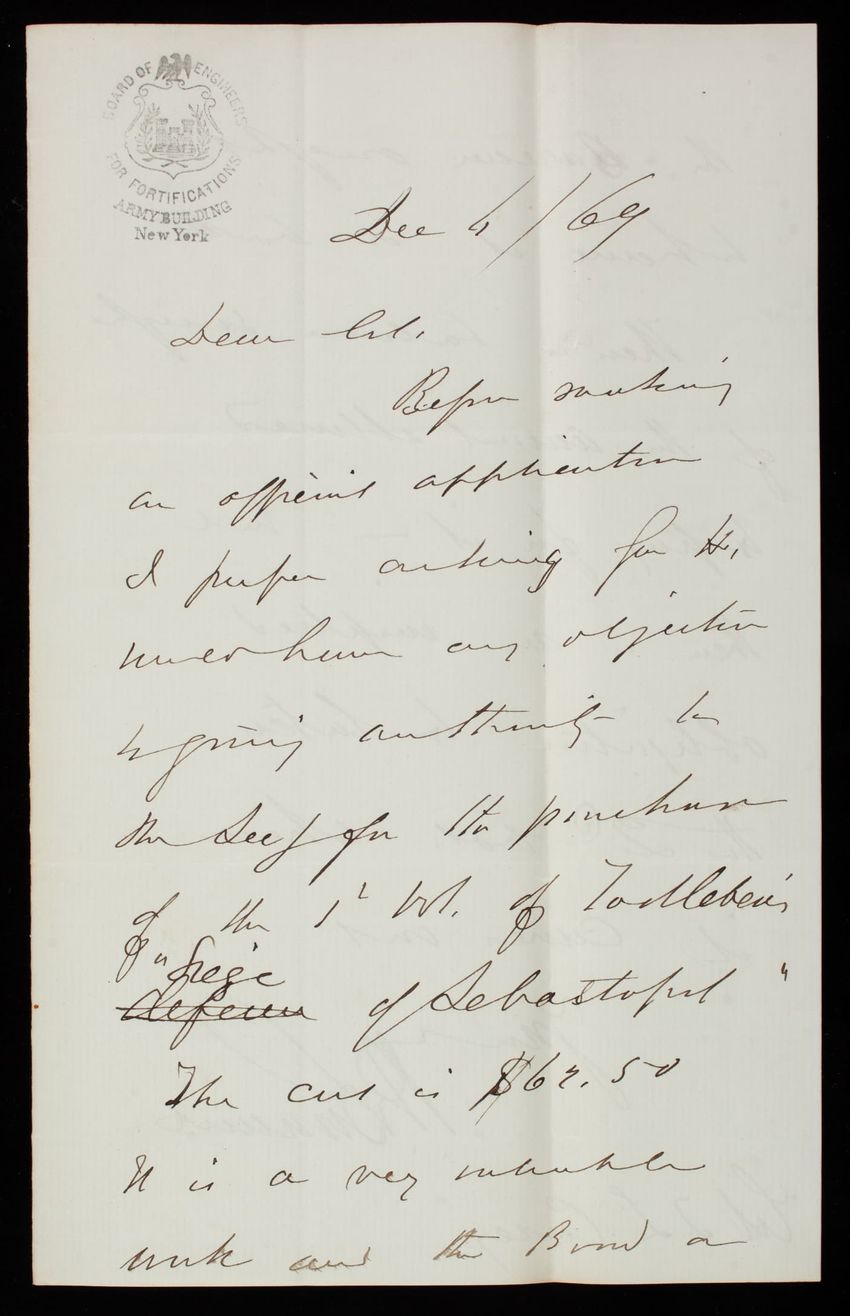 BOARD OF ENGINEERS
FOR FORTIFICATIONS
ARMY BUILDING
New York
Dec 4/69
Dear Col.
Before making
an official application
I prefer asking for the,
have any objection
to giving authority to
the Secy for the purchase
of the 1st vol. of Todtleben's
"Siege
defense of Sebastopol"
The cost is $62.50
It is a very valuable
work and the Board